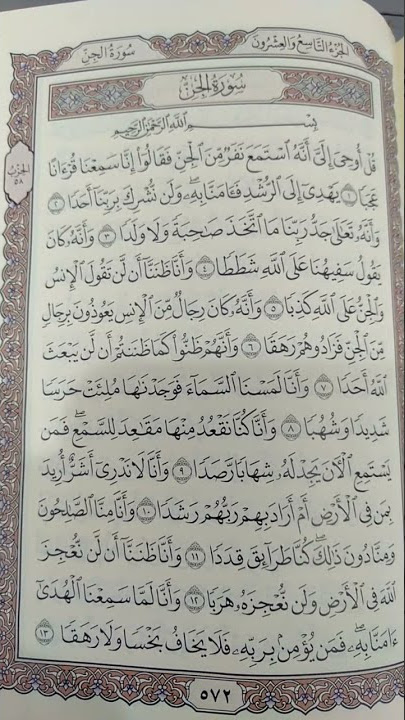 الجُزْءُ التَّاسِعُ وَالعِشْرُونَ
سُورَةُ الجِنّ
سُورَةُ الجِنّ
الحِزْبُ
٥٨
بِسْمِ ٱللَّهِ ٱلرَّحْمَٰنِ ٱلرَّحِيمِ
قُلْ أُوحِىَ إِلَىَّ أَنَّهُ ٱسْتَمَعَ نَفَرٌ مِّنَ ٱلْجِنِّ فَقَالُوٓا۟ إِنَّا سَمِعْنَا قُرْءَانًا
عَجَبًا ١ يَهْدِىٓ إِلَى ٱلرُّشْدِ فَـَٔامَنَّا بِهِۦ ۖ وَلَن نُّشْرِكَ بِرَبِّنَآ أَحَدًا ٢
وَأَنَّهُۥ تَعَٰلَىٰ جَدُّ رَبِّنَا مَا ٱتَّخَذَ صَٰحِبَةً وَلَا وَلَدًا ٣ وَأَنَّهُۥ كَانَ
يَقُولُ سَفِيهُنَا عَلَى ٱللَّهِ شَطَطًا ٤ وَأَنَّا ظَنَنَّآ أَن لَّن تَقُولَ ٱلْإِنسُ
وَٱلْجِنُّ عَلَى ٱللَّهِ كَذِبًا ٥ وَأَنَّهُۥ كَانَ رِجَالٌ مِّنَ ٱلْإِنسِ يَعُوذُونَ بِرِجَالٍ
مِّنَ ٱلْجِنِّ فَزَادُوهُمْ رَهَقًا ٦ وَأَنَّهُمْ ظَنُّوا۟ كَمَا ظَنَنتُمْ أَن لَّن يَبْعَثَ
ٱللَّهُ أَحَدًا ٧ وَأَنَّا لَمَسْنَا ٱلسَّمَآءَ فَوَجَدْنَٰهَا مُلِئَتْ حَرَسًا
شَدِيدًا وَشُهُبًا ٨ وَأَنَّا كُنَّا نَقْعُدُ مِنْهَا مَقَٰعِدَ لِلسَّمْعِ ۖ فَمَن
يَسْتَمِعِ ٱلْـَٔانَ يَجِدْ لَهُۥ شِهَابًا رَّصَدًا ٩ وَأَنَّا لَا نَدْرِىٓ أَشَرٌّ أُرِيدَ
بِمَن فِى ٱلْأَرْضِ أَمْ أَرَادَ بِهِمْ رَبُّهُمْ رَشَدًا ١٠ وَأَنَّا مِنَّا ٱلصَّٰلِحُونَ
وَمِنَّا دُونَ ذَٰلِكَ ۖ كُنَّا طَرَآئِقَ قِدَدًا ١١ وَأَنَّا ظَنَنَّآ أَن لَّن نُّعْجِزَ
ٱللَّهَ فِى ٱلْأَرْضِ وَلَن نُّعْجِزَهُۥ هَرَبًا ١٢ وَأَنَّا لَمَّا سَمِعْنَا ٱلْهُدَىٰٓ
ءَامَنَّا بِهِۦ ۖ فَمَن يُؤْمِنۢ بِرَبِّهِۦ فَلَا يَخَافُ بَخْسًا وَلَا رَهَقًا ١٣
٥٧٢